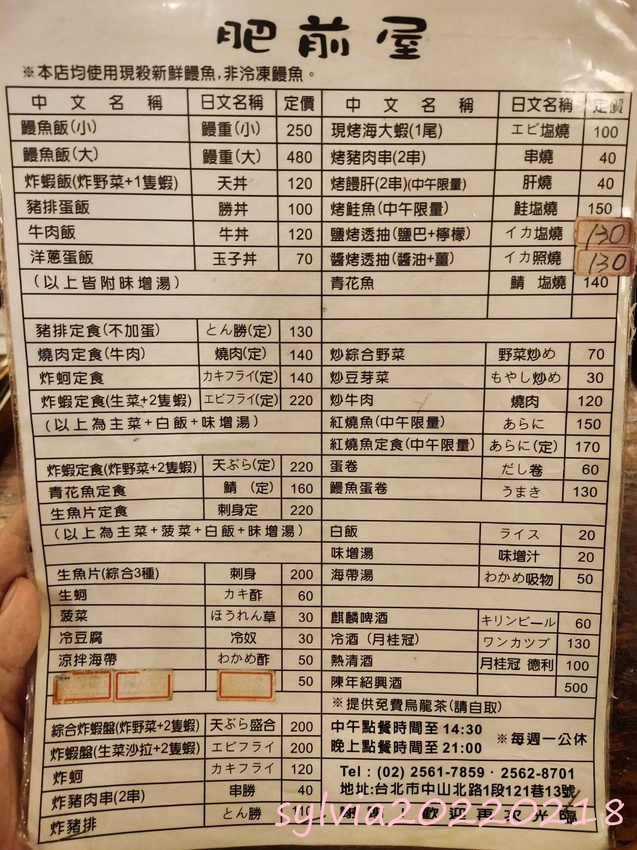 肥前屋
※本店均使用現殺新鮮鰻魚,非冷凍鰻魚。
中文名稱 日文名稱 定價
鰻魚飯(小) 鰻重(小) 250
鰻魚飯(大) 鰻重(大) 480
炸蝦飯(炸野菜+1隻蝦) 天丼 120
豬排蛋飯 勝丼 100
牛肉飯 牛丼 120
洋蔥蛋飯 玉子丼 70
(以上皆附味增湯)
豬排定食(不加蛋) とん勝(定) 130
燒肉定食(牛肉) 燒肉(定) 140
炸蚵定食 カキフライ(定) 140
炸蝦定食(生菜+2隻蝦) エビフライ(定) 220
(以上為主菜+白飯+味增湯)
炸蝦定食(炸野菜+2隻蝦) 天ぷら(定) 220
青花魚定食 鯖 (定) 160
生魚片定食 刺身定 220
(以上為主菜+菠菜+白飯+味增湯)
生魚片(綜合3種) 刺身 200
生蚵 カキ酢 60
菠菜 ほうれん草 30
冷豆腐 冷奴 30
涼拌海帶 わかめ酢 50
50
綜合炸蝦盤(炸野菜+2隻蝦) 天ぷら盛合 200
炸蝦盤(生菜沙拉+2隻蝦) エビフライ 200
炸蚵 カキフライ 120
炸豬肉串(2串) 串勝 40
炸豬排 とん勝
中文名稱 日文名稱 定價
現烤海大蝦(1尾) エビ塩燒 100
烤豬肉串(2串) 串燒 40
烤鰻肝(2串)(中午限量) 肝燒 40
烤鮭魚(中午限量) 鮭塩燒 150
鹽烤透抽(鹽巴+檸檬) イカ塩燒 130
醬烤透抽(醬油+薑) イカ照燒 130
青花魚 鯖 塩燒 140
炒綜合野菜 野菜炒め 70
炒豆芽菜 もやし炒め 30
炒牛肉 燒肉 120
紅燒魚(中午限量) あらに 150
紅燒魚定食(中午限量) あらに(定) 170
蛋卷 だし卷 60
鰻魚蛋卷 うまき 130
白飯 ライス 20
味增湯 味增汁 20
海帶湯 わかめ吸物 50
麒麟啤酒 キリンビール 60
冷酒(月桂冠) ワンカツプ 130
熱清酒 月桂冠 德利 100
陳年紹興酒 500
※提供免費烏龍茶(請自取)
中午點餐時間至14:30
晚上點餐時間至21:00 ※每週一公休
Tel:(02) 2561-7859・2562-8701
地址:台北市中山北路1段121巷13號
謝謝 歡迎再次光臨
sylvia20220218